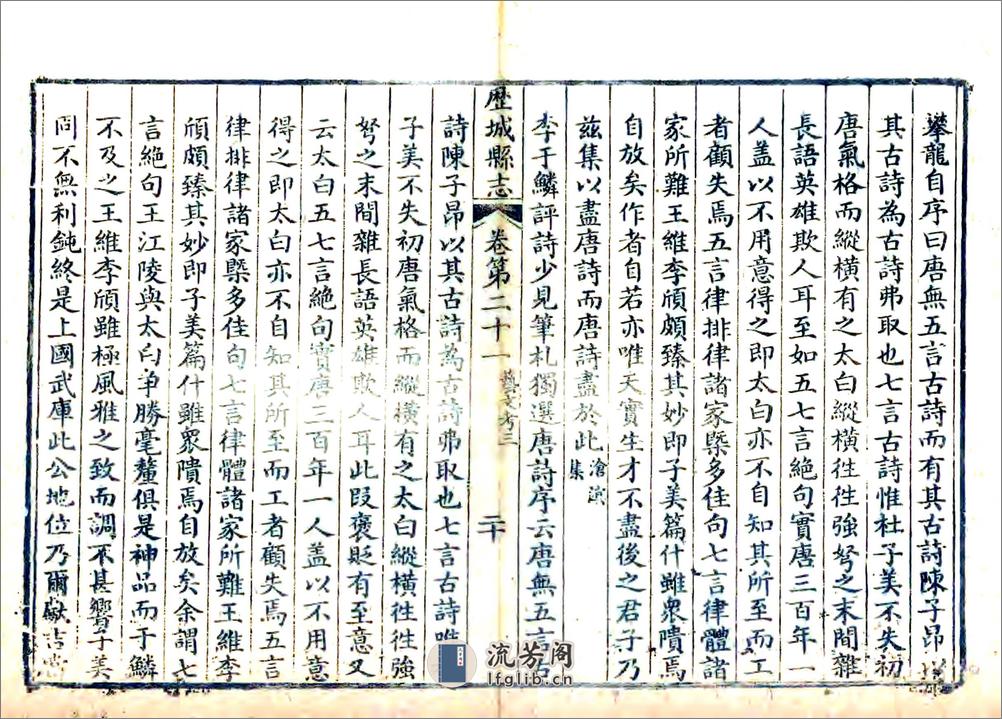 攀龍自序曰唐無五言古詩而有其古詩陳子昂以
其古詩為古詩弗取也七言古詩惟杜子美不失初
唐氣格而縱橫有之太白縱橫徃徃強弩之末間雜
長語英雄欺人耳至如五七言絶句實唐三百年一
人盖以不用意得之即太白亦不自知其所至而工
者顧失焉五言律排律諸家槩多佳句七言律體諸
家所難王維李頎頗臻其妙即子美篇什雖衆隤焉
自放矣作者自若亦唯天實生才不盡後之君子乃
兹集以盡唐詩而唐詩盡於此 滄溟集
李于鱗評詩少見筆札獨選唐詩序云唐無五言古
歷城縣志 卷第二十一 藝文考三 二十
詩陳子昂以其古詩為古詩弗取也七言古詩唯
子美不失初唐氣格而縱橫有之太白縱橫徃徃強
弩之末間雜長語英雄欺人耳此段褒貶有至意又
云太白五七言絶句實唐三百年一人盖以不用意
得之即太白亦不自知其所至而工者顧失焉五言
律排律諸家槩多佳句七言律體諸家所難王維李
頎頗臻其妙即子美篇什雖衆隤焉自放矣余謂七
言絶句王江陵與太白爭勝毫釐俱是神品而于鱗
不及之王維李頎雖極風雅之致而調不甚響子美
固不無利鈍終是上國武庫此公地位乃爾獻吉當
流芳阁
lfglib.cn